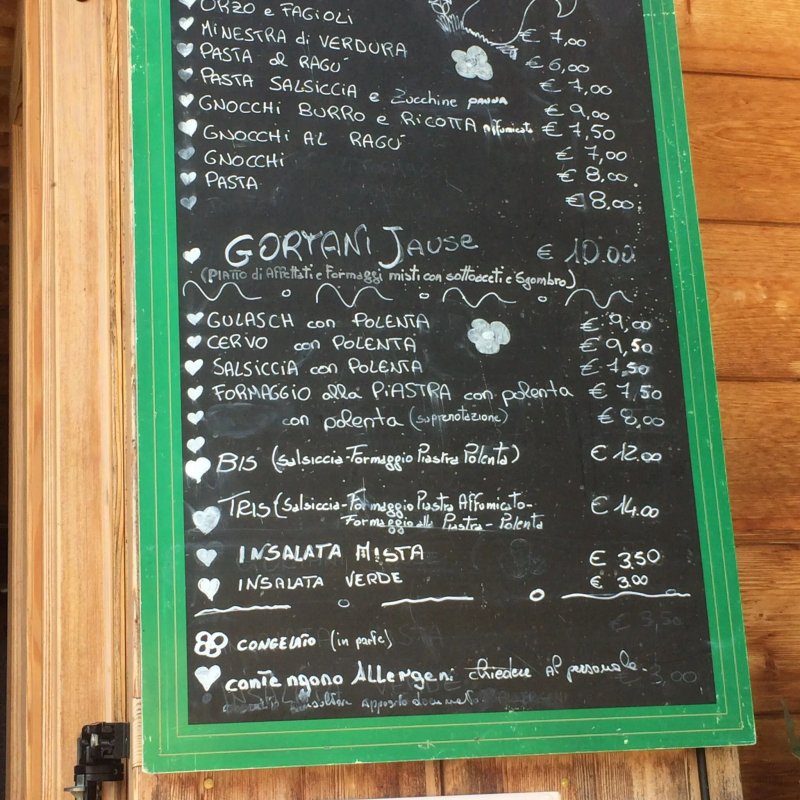 ORZO e FAGIOLI € 7,00
MINESTRA di VERDURA € 6,00
PASTA al RAGU' € 7,00
PASTA SALSICCIA e Zucchine panna € 9,00
GNOCCHI BURRO e RICOTTA affumicata € 7,50
GNOCCHI AL RAGU' € 7,00
GNOCCHI € 8,00
PASTA € 8,00
GORTANI JAUSE € 10.00
(PIATTO di Affettati e Formaggi misti con sottoaceti e Sgombro)
GULASCH con POLENTA € 9,00
CERVO con POLENTA € 9,50
SALSICCIA con POLENTA € 7,50
FORMAGGIO alla PIASTRA con polenta € 7,50
con polenta (su prenotazione) € 8,00
BIS (Salsiccia-Formaggio Piastra Polenta) € 12.00
TRIS (Salsiccia-Formaggio Piastra Affumicato- € 14.00
Formaggio alla Piastra-Polenta
INSALATA MISTA € 3,50
INSALATA VERDE € 3,00
CONGELATO (in parte)
contengono Allergeni chiedere al personale.
apposito documento